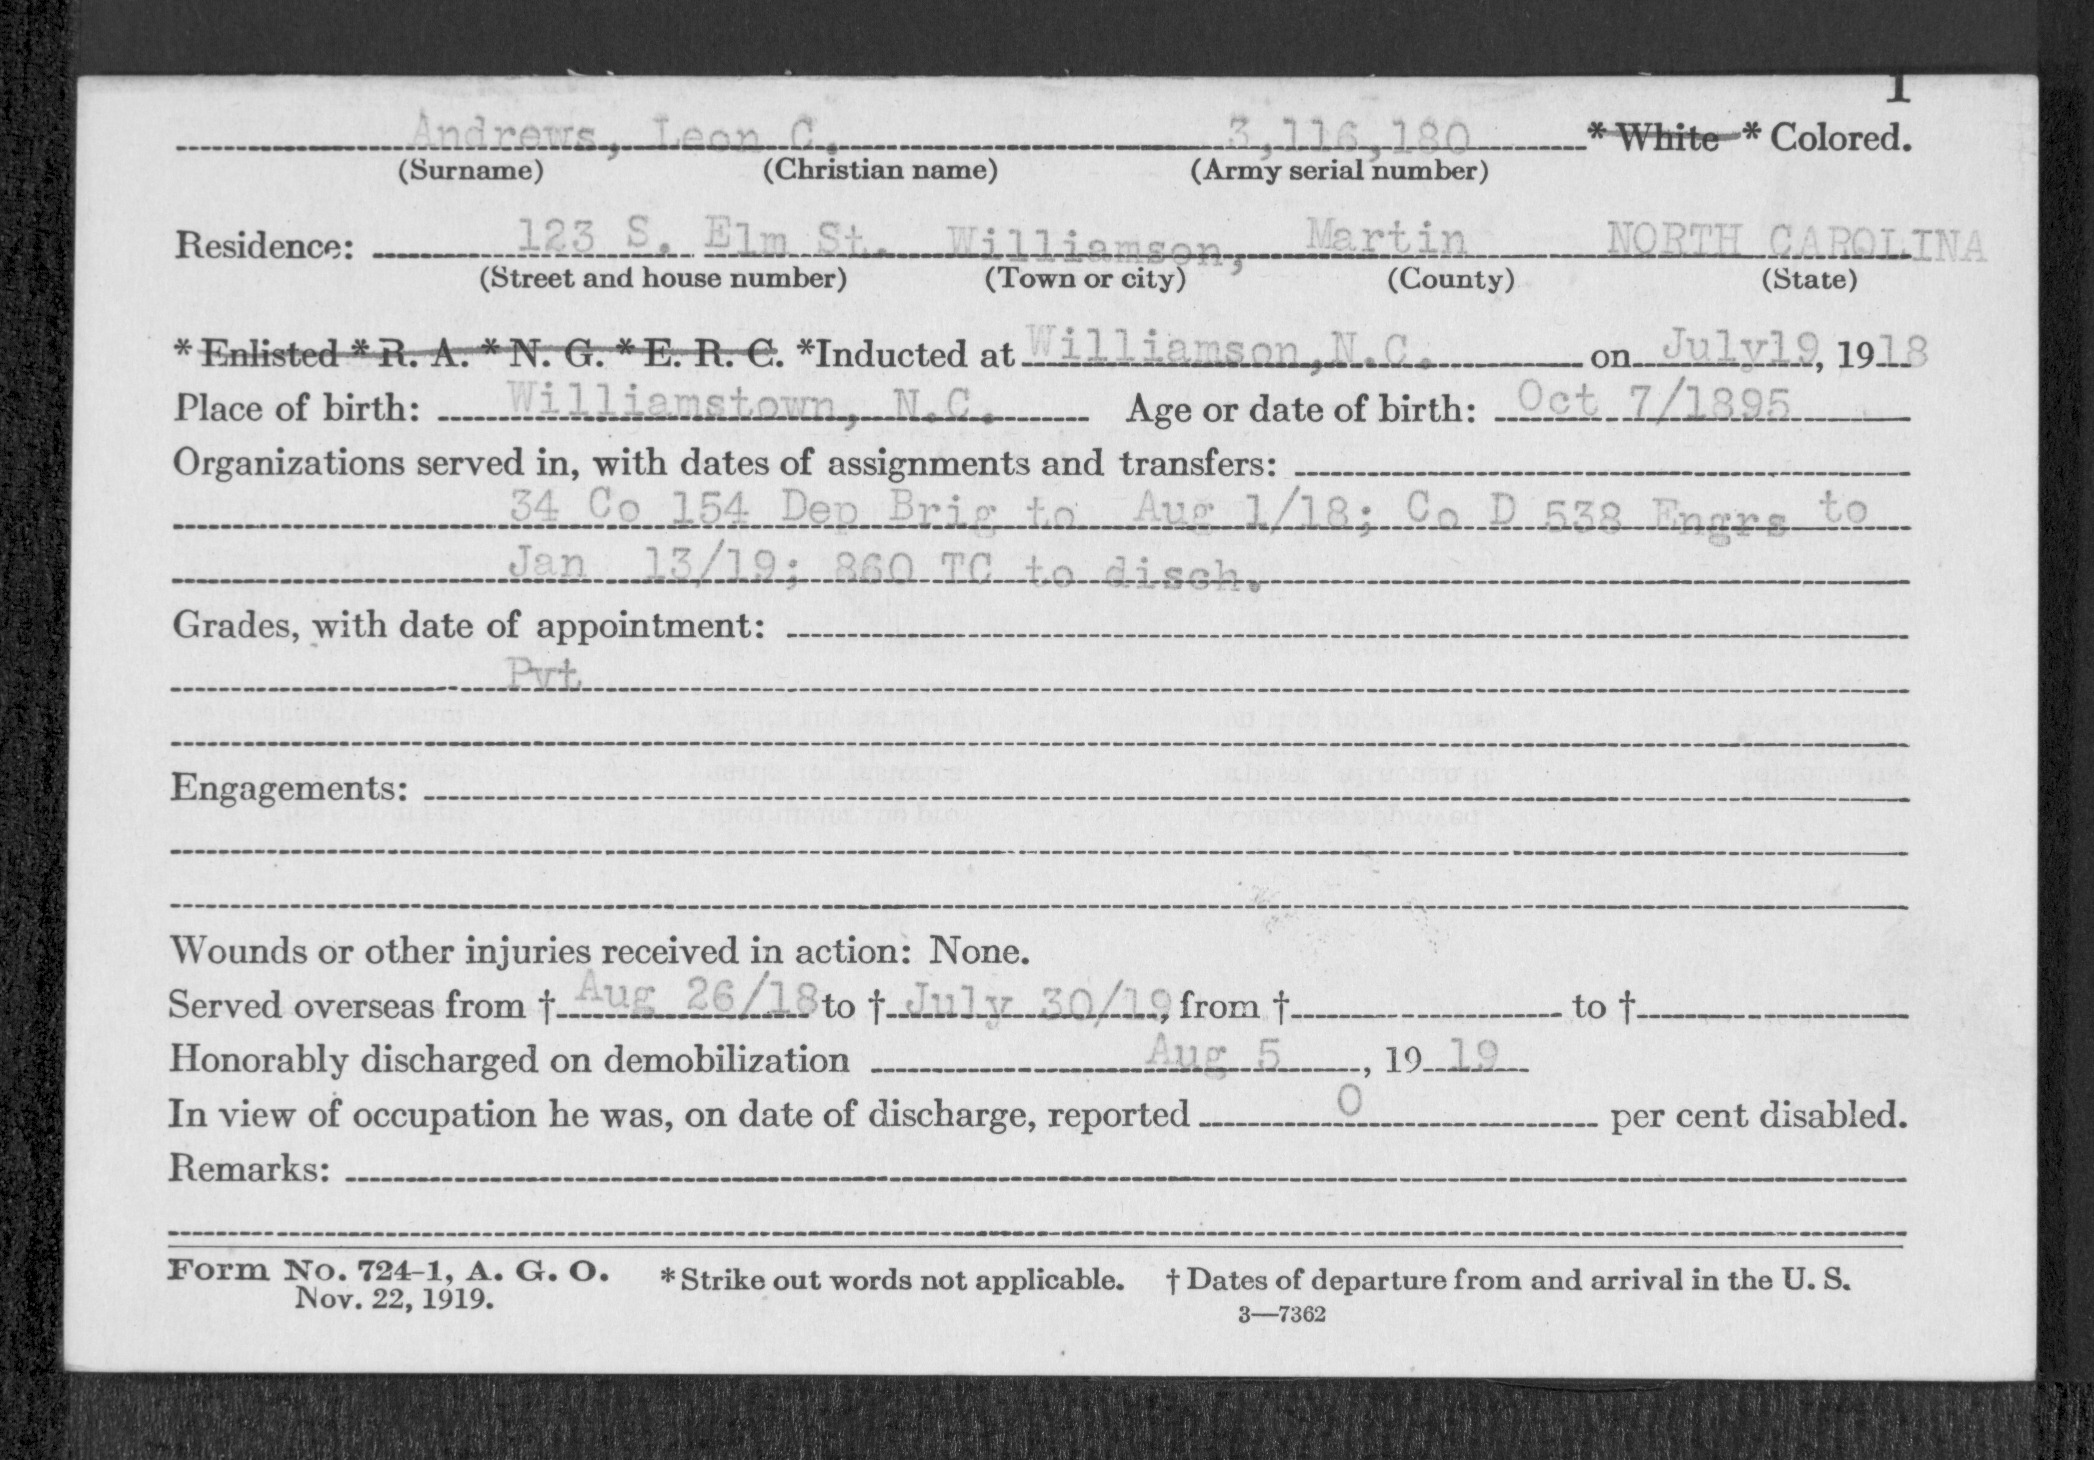 1
Andrews, Leon C. 3,116,180 * White * Colored.
(Surname) (Christian name) (Army serial number)
Residence: 123 S. Elm St. Williamson, Martin NORTH CAROLINA
(Street and house number) (Town or city) (County) (State)
* Enlisted * R. A. * N. G. * E. R. C. *Inducted at Williamson, N.C. on July 19, 1918
Place of birth: Williamstown, N.C. Age or date of birth: Oct 7/1895
Organizations served in, with dates of assignments and transfers:
34 Co 154 Dep Brig to Aug 1/18; Co D 538 Engrs to
Jan 13/19; 860 TC to disch.
Grades, with date of appointment:
Pvt
Engagements:
Wounds or other injuries received in action: None.
Served overseas from † Aug 26/18 to † July 30/19, from † to †
Honorably discharged on demobilization Aug 5, 1919
In view of occupation he was, on date of discharge, reported 0 per cent disabled.
Remarks:
Form No. 724-1, A. G. O. * Strike out words not applicable. † Dates of departure from and arrival in the U. S.
Nov. 22, 1919. 3—7362